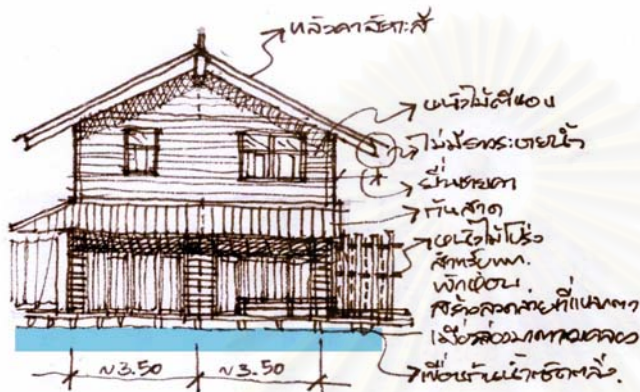 หลังคาสังกะสี
ผนังไม้ตีนอน
ไม่มีรางระบายน้ำ
ยื่นชายคา
กันสาด
ผนังไม้โปร่ง
สำหรับ
พักผ่อน
สร้างลวดลายที่แปลกตา
เมื่อล่องมาตามคลอง
เขื่อนกันน้ำเซาะตลิ่ง.
~3.50 ~3.50